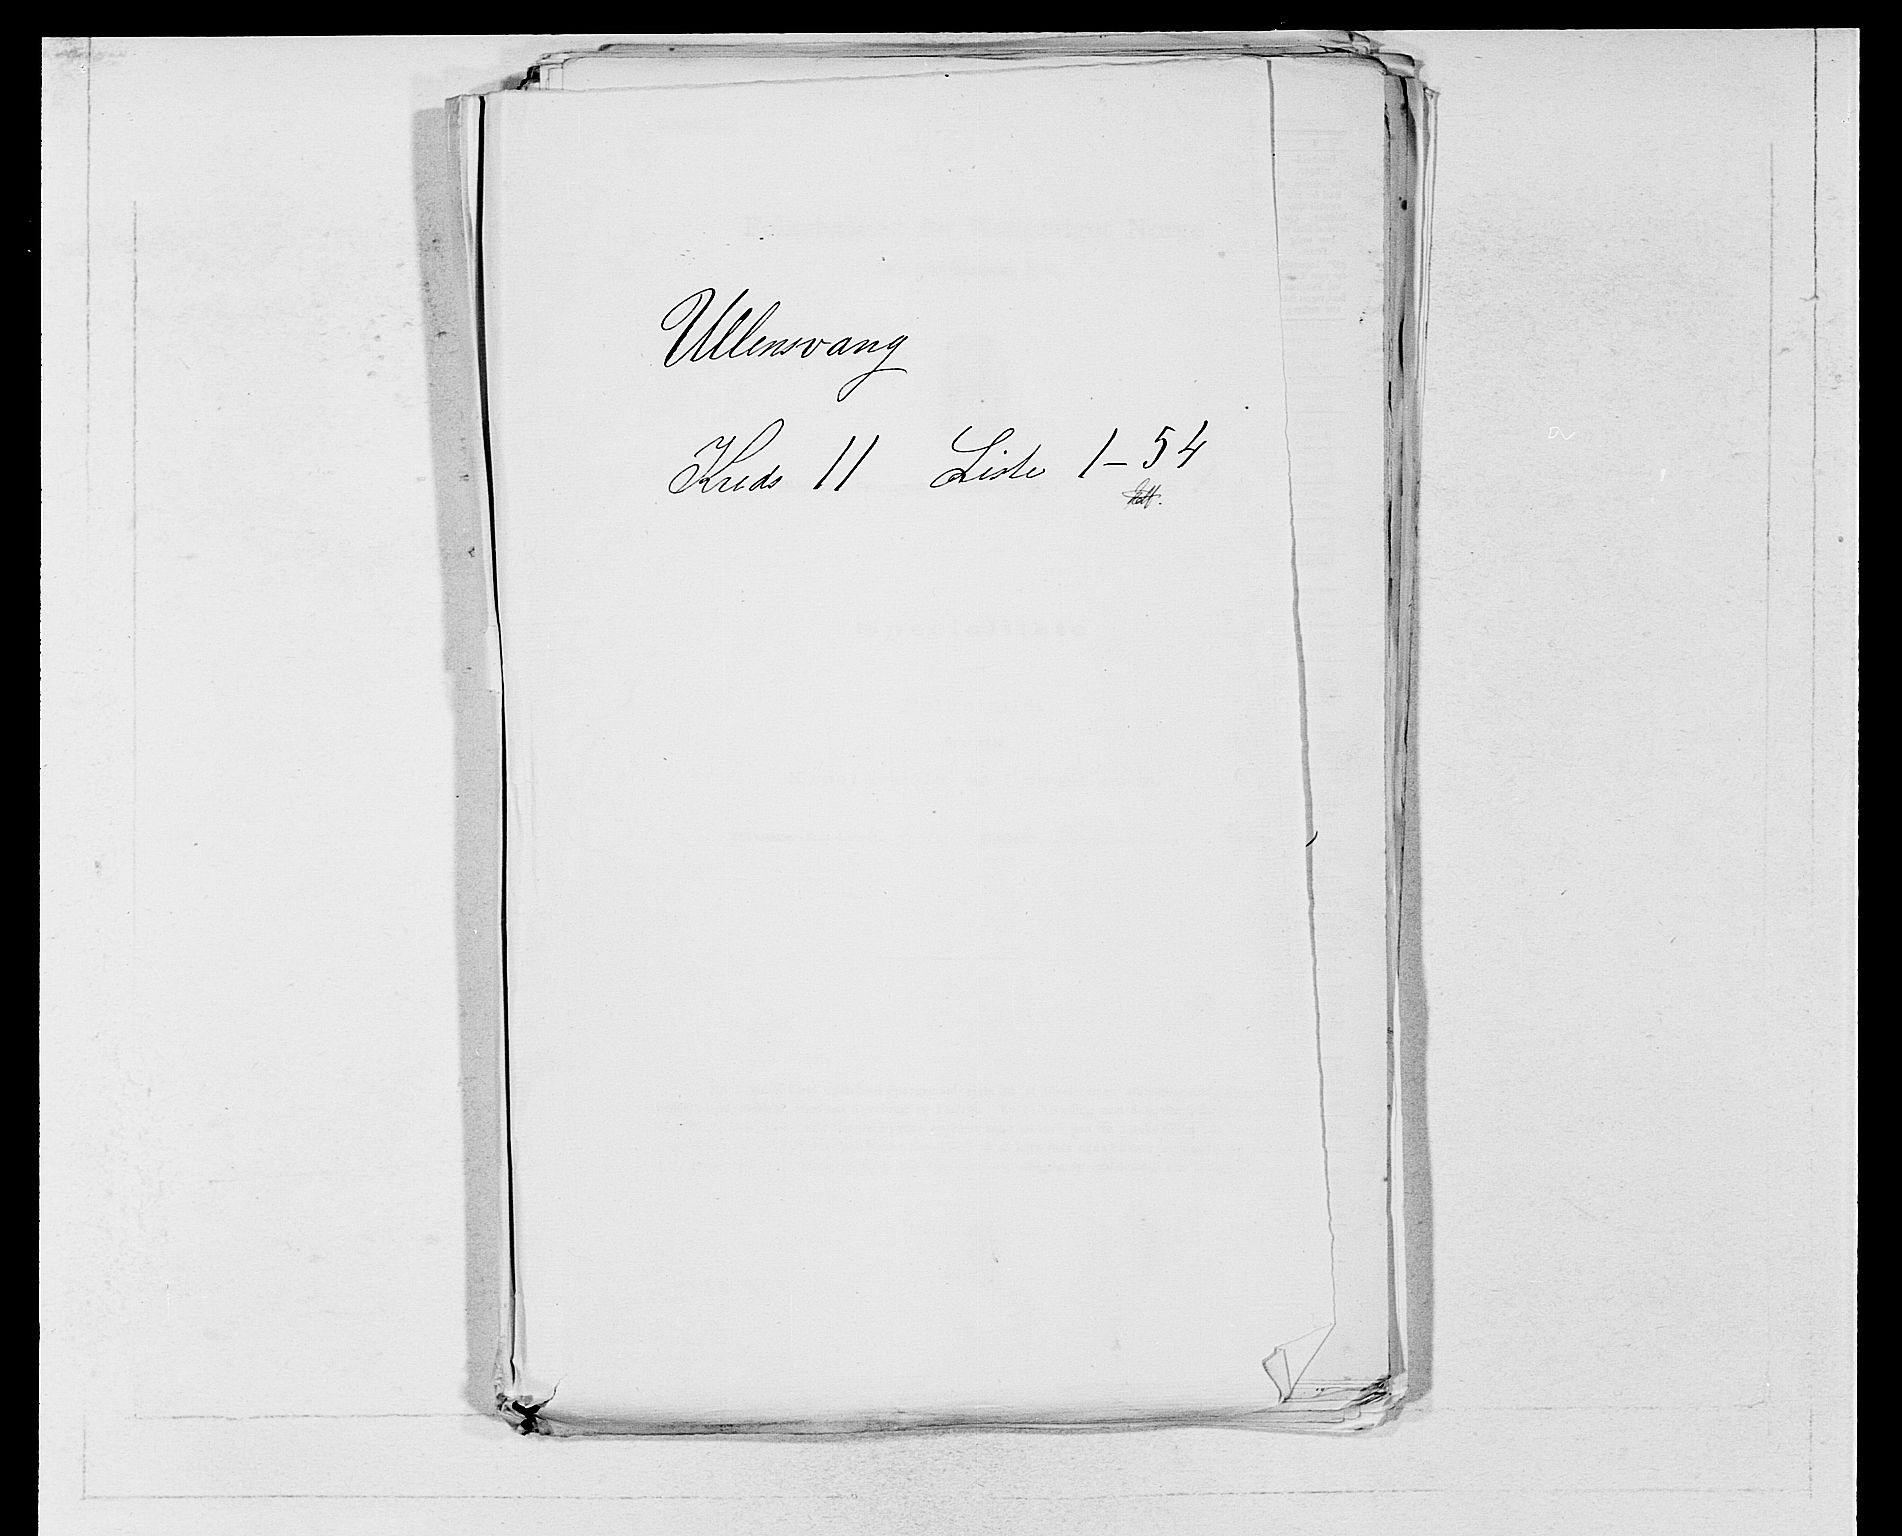 Ullensvang
Kreds 11 Liste 1-54